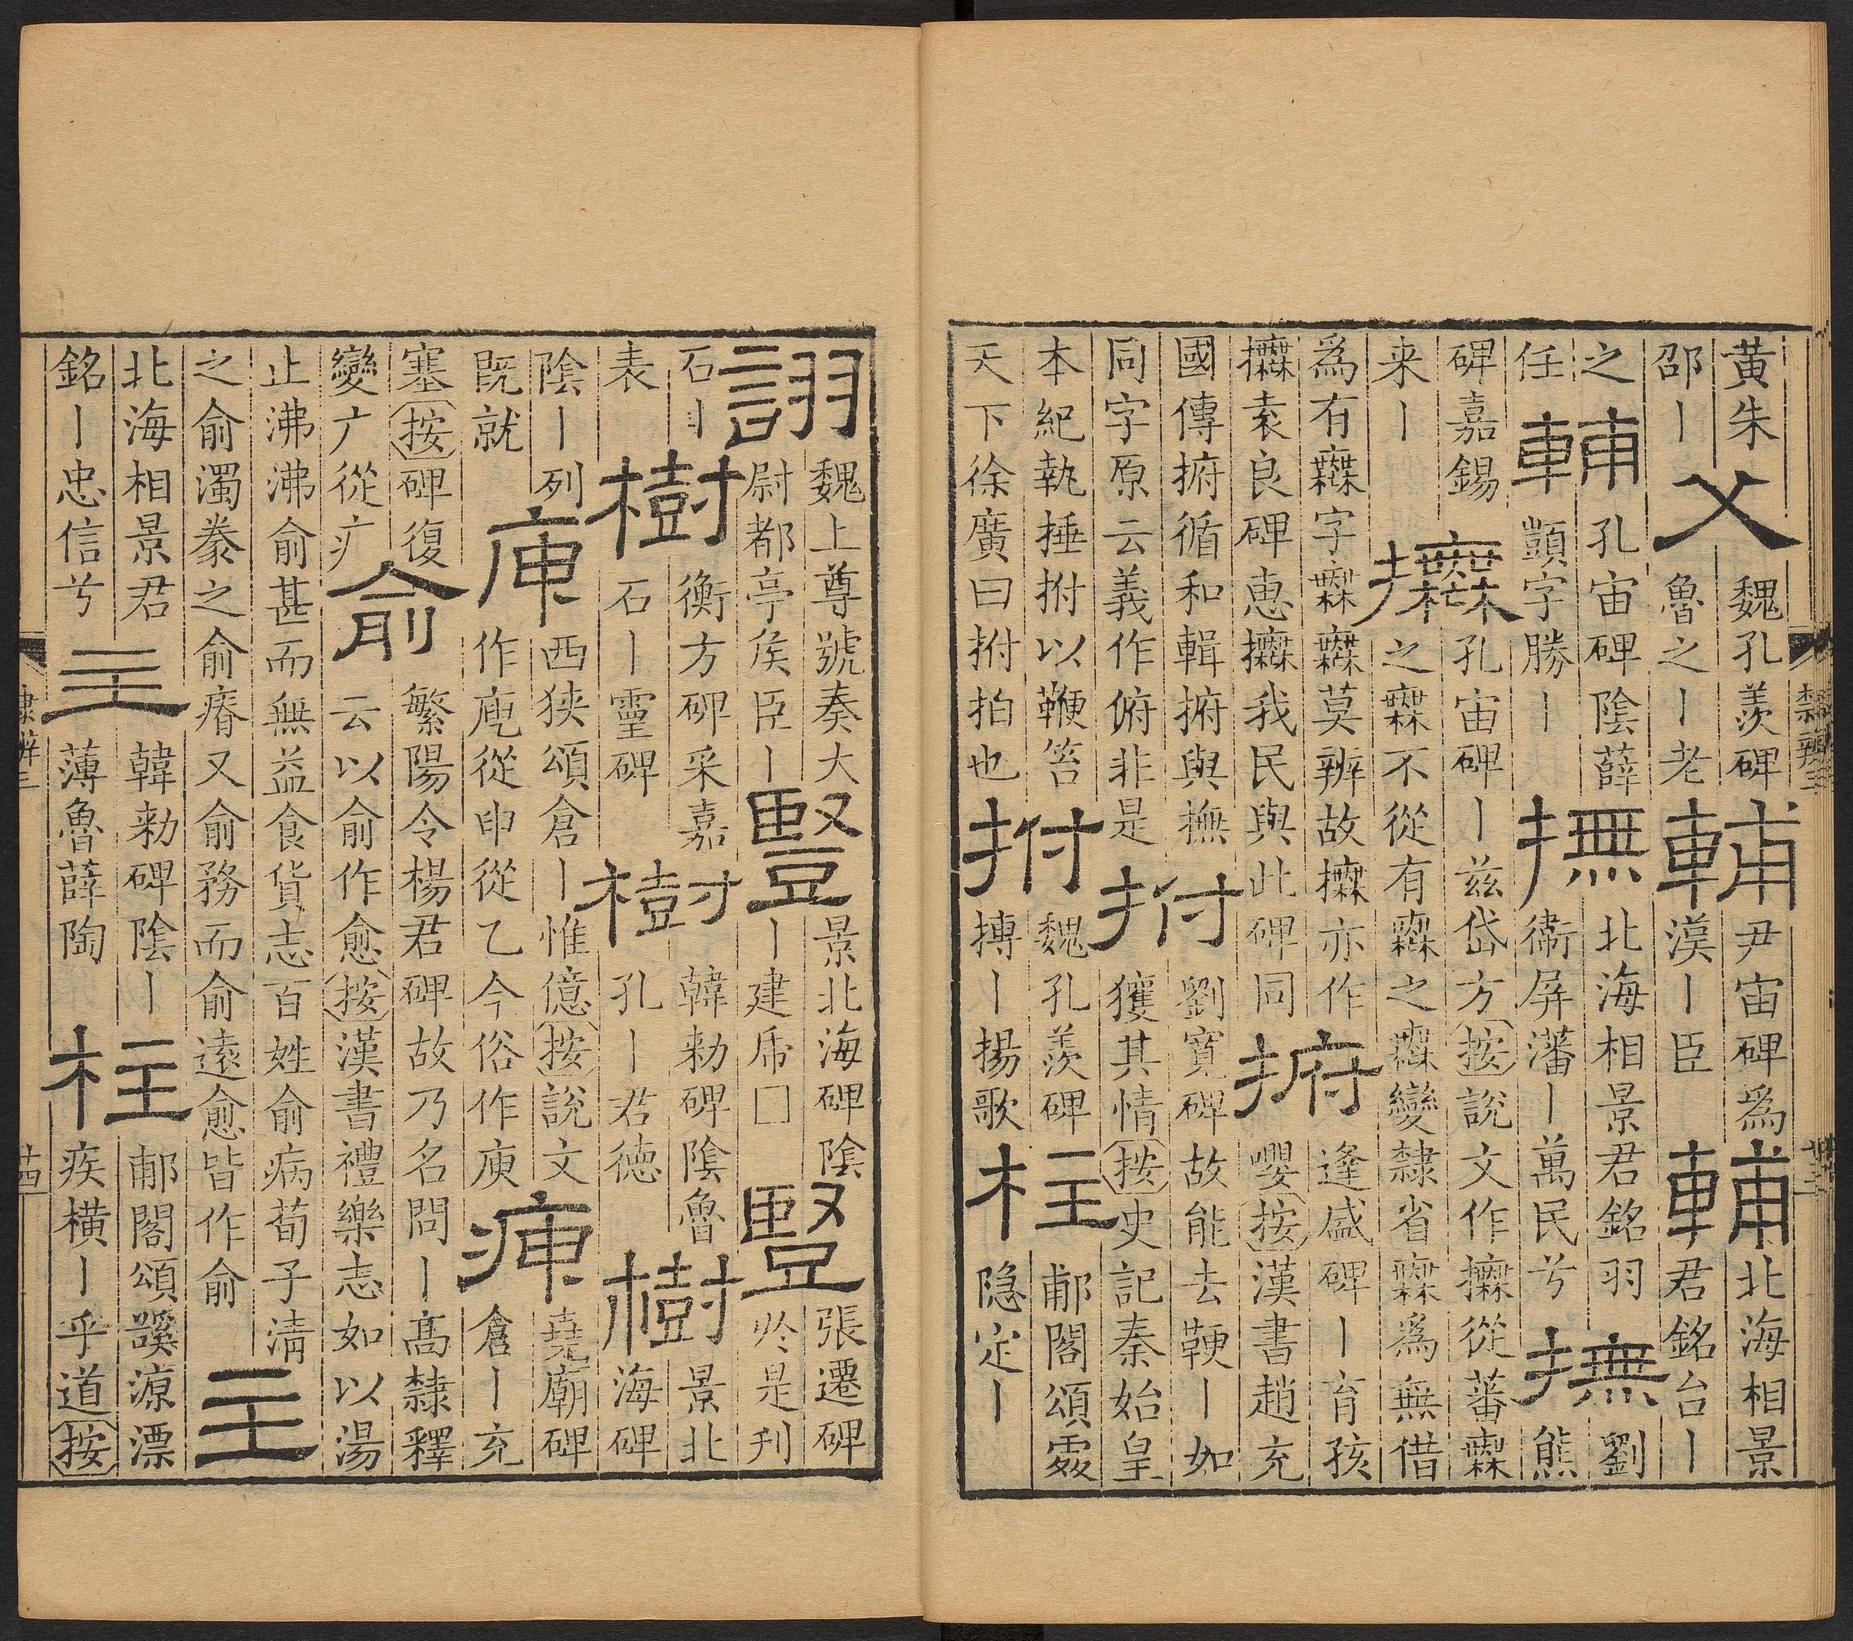 黃朱父魏孔羨碑輔尹宙碑爲輔北海相景
邵丨魯之丨老漢丨臣君銘台丨
之輔孔宙碑陰薛撫北海相景君銘羽撫劉
任顗字勝丨衞屏藩丨萬民兮熊
碑嘉錫𢺞孔宙碑丨兹岱方按說文作𢺞從蕃橆
来丨之橆不從有橆之橆變隸省橆爲無借
爲有橆字橆橆莫辨故𢺞亦作㨈逢盛碑丨育孩
𢺞袁良碑惠𢺞我民與此碑同嬰按漢書趙充
國傳㨈循和輯㨈與撫拊劉寬碑故能去鞕丨如
同字原云義作俯非是獲其情按史記秦始皇
本紀執捶拊以鞭笞拊魏孔羨碑柱郙閣頌䖏
天下徐廣曰拊拍也摶丨揚歌隐定丨
詡魏上尊號奏大豎景北海碑陰豎張遷碑
尉都亭矦臣丨丨建虒□扵是刋
石刂樹衡方碑采嘉樹韓勑碑陰魯樹景北
表石丨靈碑孔丨君德海碑
陰丨列庾西狹頌倉丨惟億按說文庾堯廟碑
既就作庾從申從乙今俗作庾倉丨充
塞按碑復俞繁陽令楊君碑故乃名問丨高隸釋
變广從疒云以俞作愈按漢書禮樂志如以湯
止沸沸俞甚而無益食貨志百姓俞病荀子清
之俞濁豢之俞瘠又俞務而俞遠愈皆作俞主
北海相景君主韓勑碑陰丨柱郙閣頌谿源漂
銘丨忠信兮薄魯薛陶疾橫丨乎道按
隸辨三